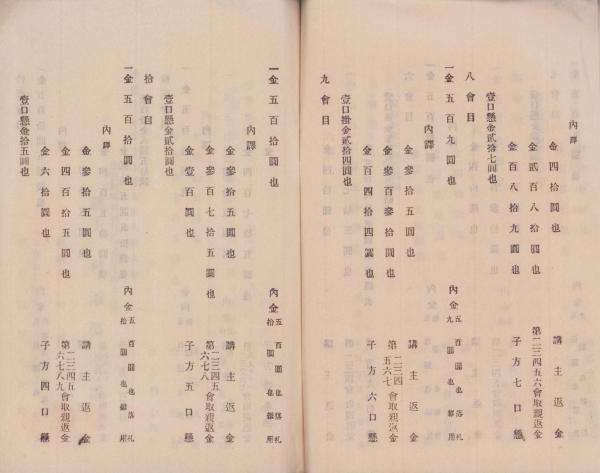 內譯
金四拾圓也 講主返金
金貳百八拾圓也 第二三四五六會取親返金
金百八拾九圓也 子方七口懸
壹口懸金貳拾七圓也
八會目
一金五百九圓也 內金五百圓也落札 九圓也雜用
內譯
金參拾五圓也 講主返金
金參百參拾圓也 第二三四五六七會取親返金
金百四拾四圓也 子方六口懸
壹口掛金貳拾四圓也
九會目
一金五百拾圓也 內金五百圓也落札 拾圓也雜用
內譯
金參拾五圓也 講主返金
金參百七拾五圓也 第二三四五六七八會取親返金
金壹百圓也 子方五口懸
壹口懸金貳拾圓也
拾會目
一金五百拾圓也 內金五百圓也落札 拾圓也雜用
內譯
金參拾五圓也 講主返金
金四百拾五圓也 第二三四五六七八九會取親返金
金六拾圓也 子方四口懸
壹口懸金拾五圓也